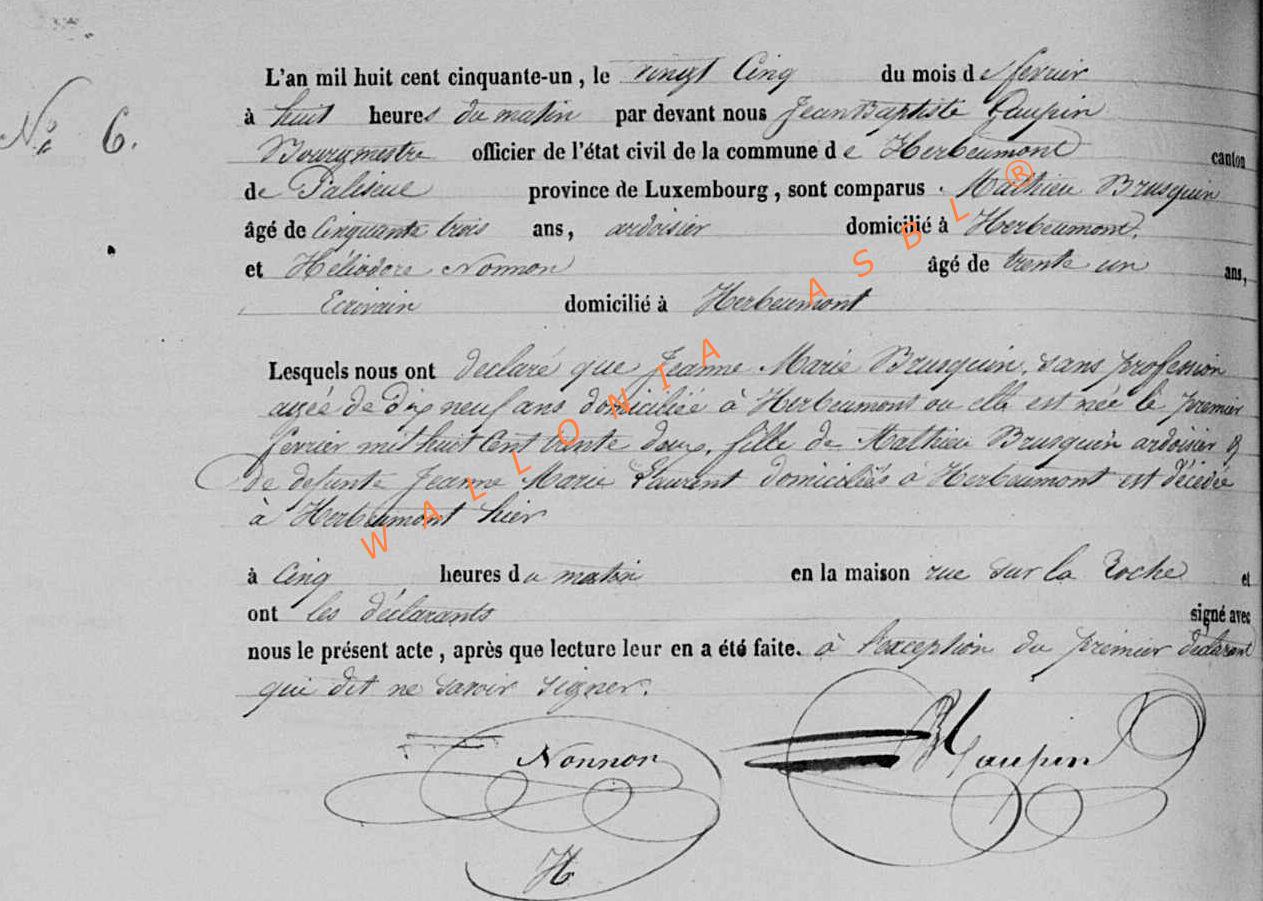 N° 6.
L'an mil huit cent cinquante-un, le vingt Cinq du mois de fevrier
à huit heures du matin par devant nous Jean Baptiste Laupin
Bourgmestre officier de l'état civil de la commune de Herbeumont canton
de Paliseul province de Luxembourg, sont comparus Mathieu Brusquin
âgé de Cinquante trois ans, ardoisier domicilié à Herbeumont.
et Héliodore Nonnon âgé de trente un ans,
Ecrivain domicilié à Herbeumont
Lesquels nous ont declaré que Jeanne Marie Brusquin, sans profession
agée de dix neuf ans domiciliée à Herbeumont ou elle est née le premier
fevrier mil huit Cent trente deux, fille de Mathieu Brusquin ardoisier &
de defunte Jeanne Marie Laurent domiciliés à Herbeumont est décédée
à Herbeumont hier
à Cinq heures du matin en la maison rue sur la Roche et
ont les déclarants signé avec
nous le présent acte, après que lecture leur en a été faite. à l'exception du premier déclarant
qui dit ne savoir signer.
Nonnon Laupin
H
WALLONIA ASBL ®